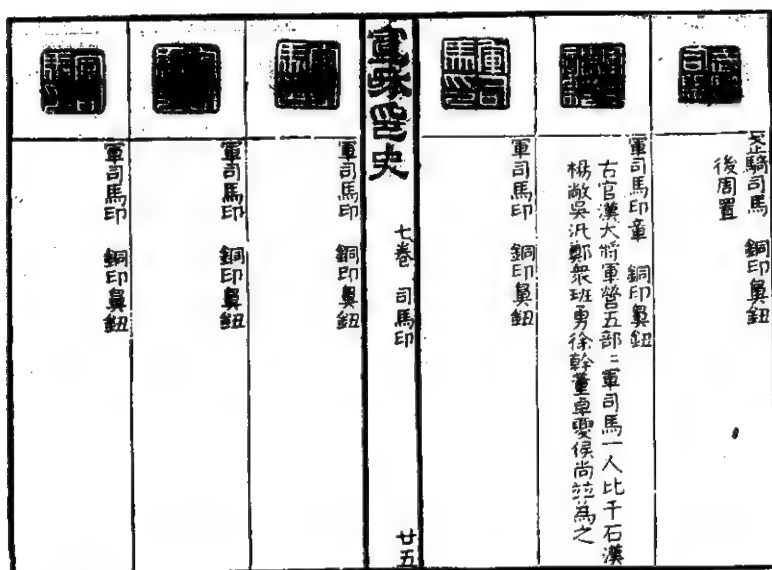 騎司馬 銅印鼻鈕
後周置
軍司馬印章 銅印鼻鈕
古官漢大將軍營五部〻軍司馬一人比千石漢
楊敞吳汎鄭衆班勇徐幹董卓夏侯尚竝為之
軍司馬印
軍司馬印 銅印鼻鈕
宣和印史 七卷 司馬印 廿五
軍司馬印 銅印鼻鈕
軍司馬印 銅印鼻鈕
軍司馬印 銅印鼻鈕